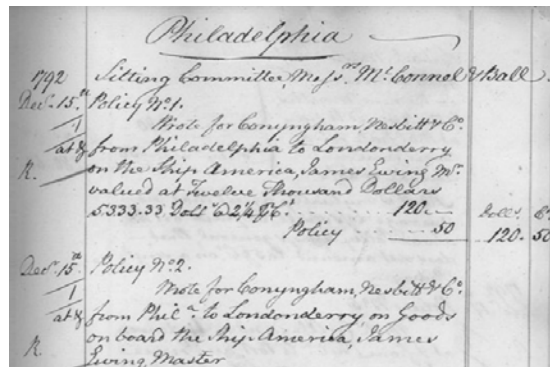 Philadelphia
1792 Sitting Committee, Messrs. McConnel & Ball
Decr. 15th. Policy No. 1.
1 Wrote for Conyngham, Nesbitt & Co.
at from Philadelphia to Londonderry
R. on the Ship America, James Ewing Mr.
valued at Twelve Thousand Dollars
5333.33 Dolls @ 2¼ 120.— Dolls. Cs.
Policy 50 120. 50
Decr. 15th. Policy No. 2.
1 Wrote for Conyngham, Nesbitt & Co.
at from Phila. to Londonderry on Goods
R. on board the Ship America, James
Ewing, Master